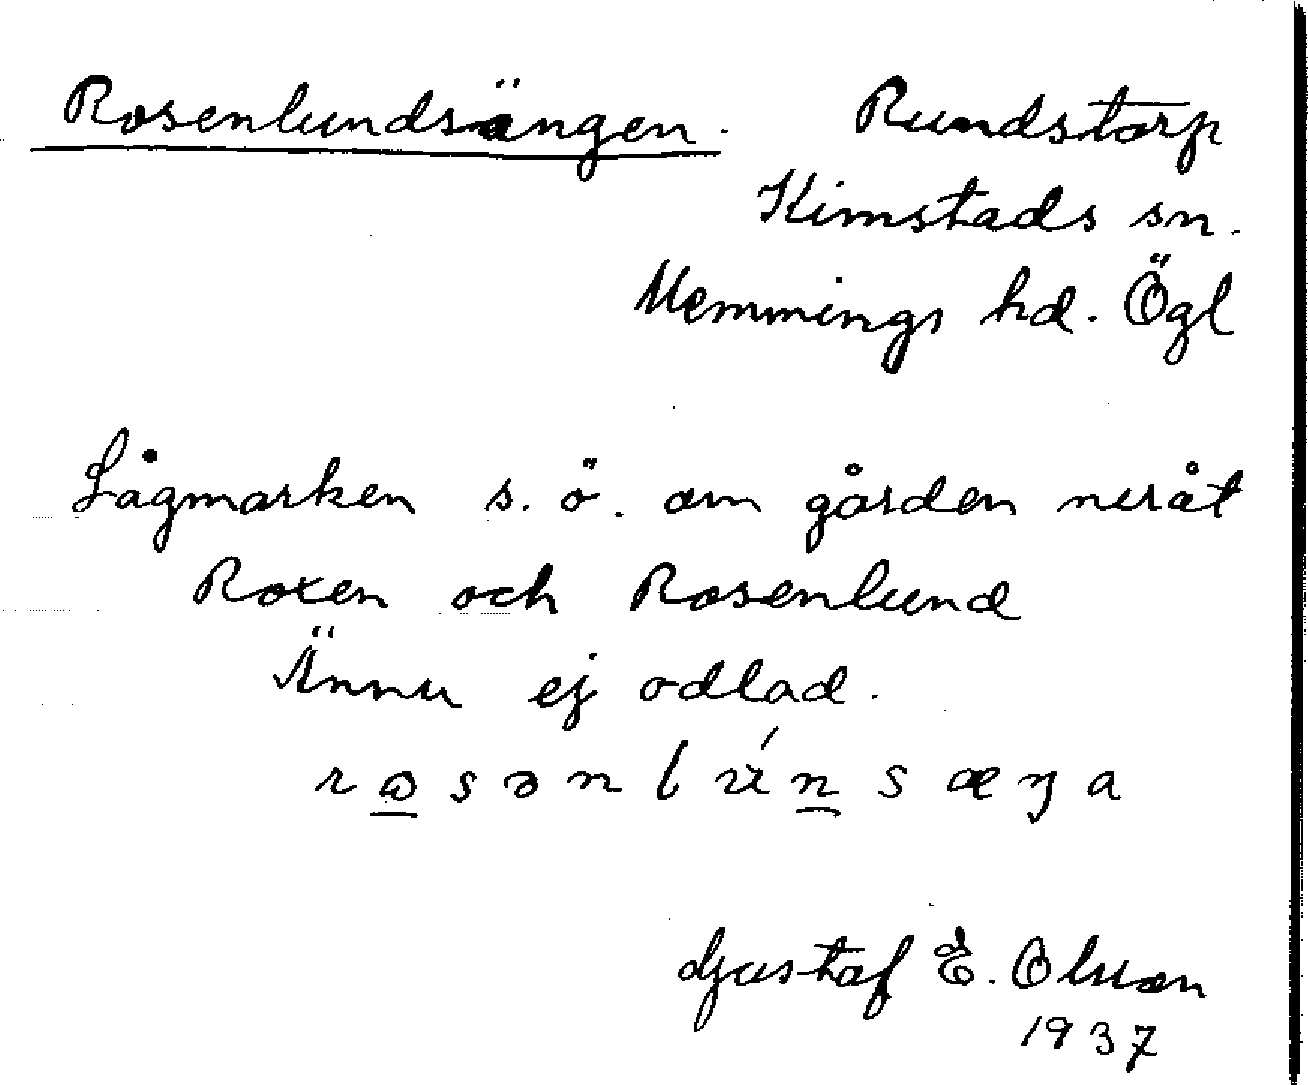 Rosenlundsängen. Rundstorp
Kimstads sn.
Memmings hd. Ögl
Lågmarken s. ö. om gården neråt
Roxen och Rosenlund
Ännu ej odlad.
Gustaf E. Olsson
1937